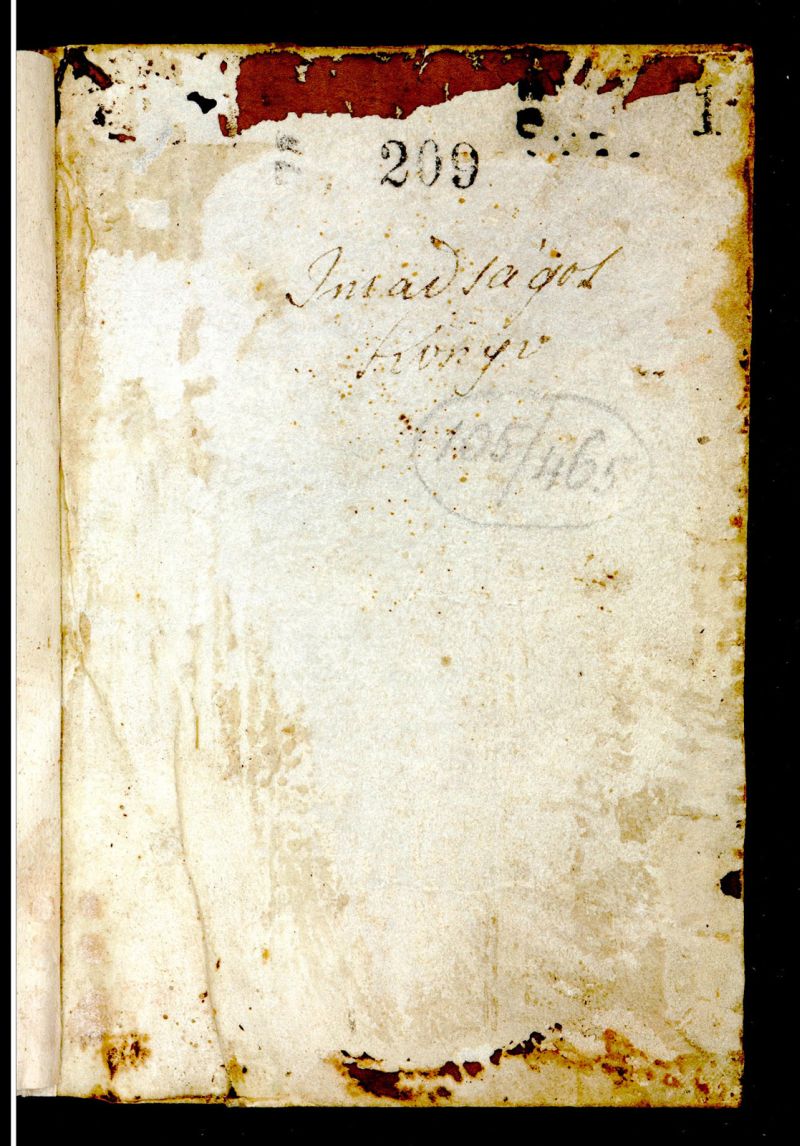 1
209
Imadságos
Könyv
105/465